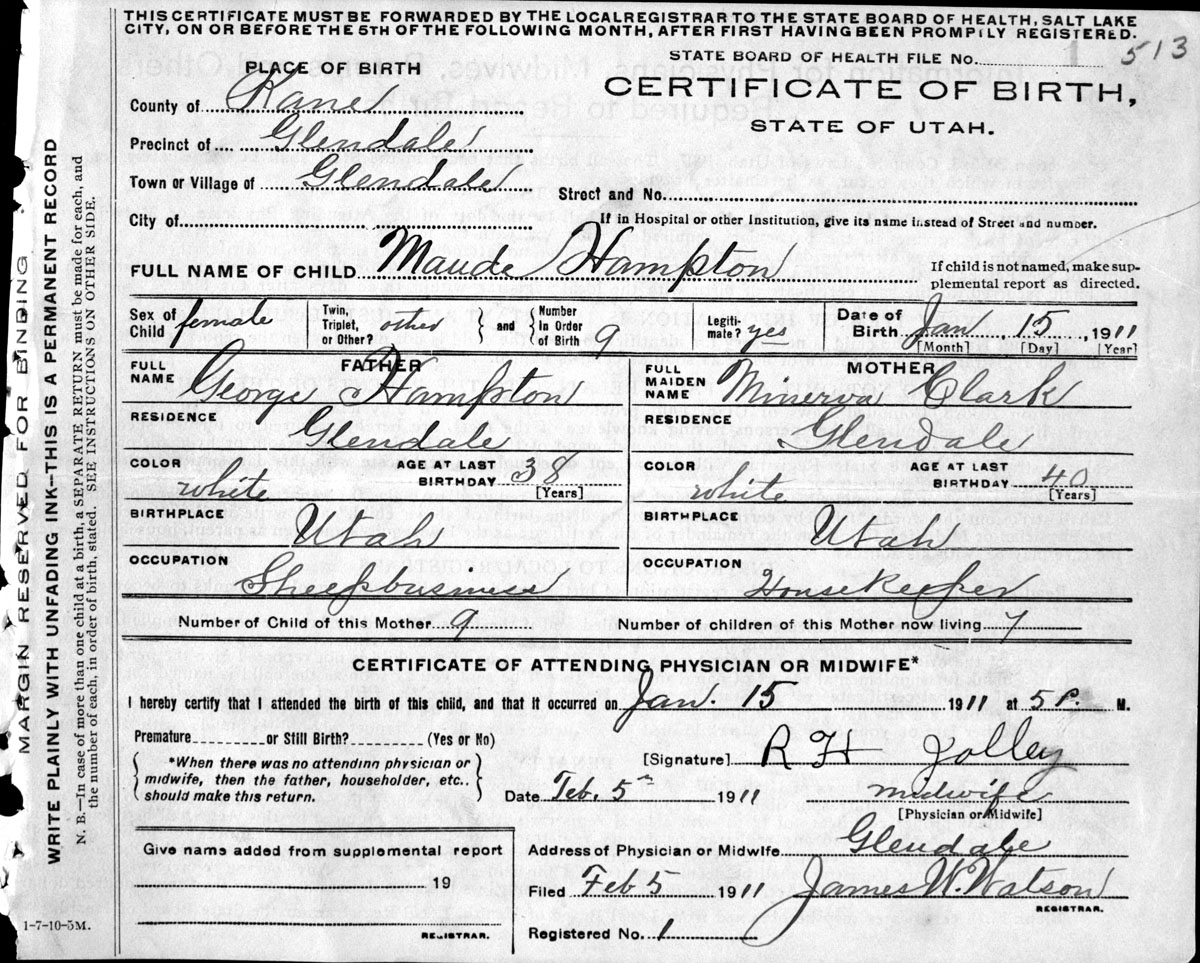 THIS CERTIFICATE MUST BE FORWARDED BY THE LOCAL REGISTRAR TO THE STATE BOARD OF HEALTH, SALT LAKE
CITY, ON OR BEFORE THE 5TH OF THE FOLLOWING MONTH, AFTER FIRST HAVING BEEN PROMPILY REGISTERED.
STATE BOARD OF HEALTH FILE No. 1 513
PLACE OF BIRTH
CERTIFICATE OF BIRTH,
STATE OF UTAH.
County of Kane
Precinct of Glendale
Town or Village of Glendale
Street and No.
City of
If in Hospital or other Institution, give its name instead of Street and number.
FULL NAME OF CHILD Maude Hampton
If child is not named, make sup-
plemental report as directed.
Sex of Child female
Twin, Triplet, or Other? other
and
Number In Order of Birth 9
Legiti-mate? yes
Date of Birth Jan 15, 1911
[Month] [Day] [Year]
FATHER
FULL NAME George Hampton
MOTHER
FULL MAIDEN NAME Minerva Clark
RESIDENCE Glendale
RESIDENCE Glendale
COLOR white
AGE AT LAST BIRTHDAY 38
[Years]
COLOR white
AGE AT LAST BIRTHDAY 40
[Years]
BIRTHPLACE Utah
BIRTHPLACE Utah
OCCUPATION Sheepbusiness
OCCUPATION Housekeeper
Number of Child of this Mother 9
Number of children of this Mother now living 7
CERTIFICATE OF ATTENDING PHYSICIAN OR MIDWIFE*
I hereby certify that I attended the birth of this child, and that it occurred on Jan. 15 1911 at 5 P. M.
Premature or Still Birth? (Yes or No)
*When there was no attending physician or
midwife, then the father, householder, etc..
should make this return.
[Signature] R H Jolley
Date Feb. 5th 1911 midwife
[Physician or Midwife]
Give name added from supplemental report
19
REGISTRAR.
Address of Physician or Midwife Glendale
Filed Feb 5 1911 James W. Watson
REGISTRAR.
Registered No. 1
MARGIN RESERVED FOR BINDING
WRITE PLAINLY WITH UNFADING INK—THIS IS A PERMANENT RECORD
N. B.—In case of more than one child at a birth, a SEPARATE RETURN must be made for each, and
the number of each, in order of birth, stated. SEE INSTRUCTIONS ON OTHER SIDE.
1-7-10-5M.